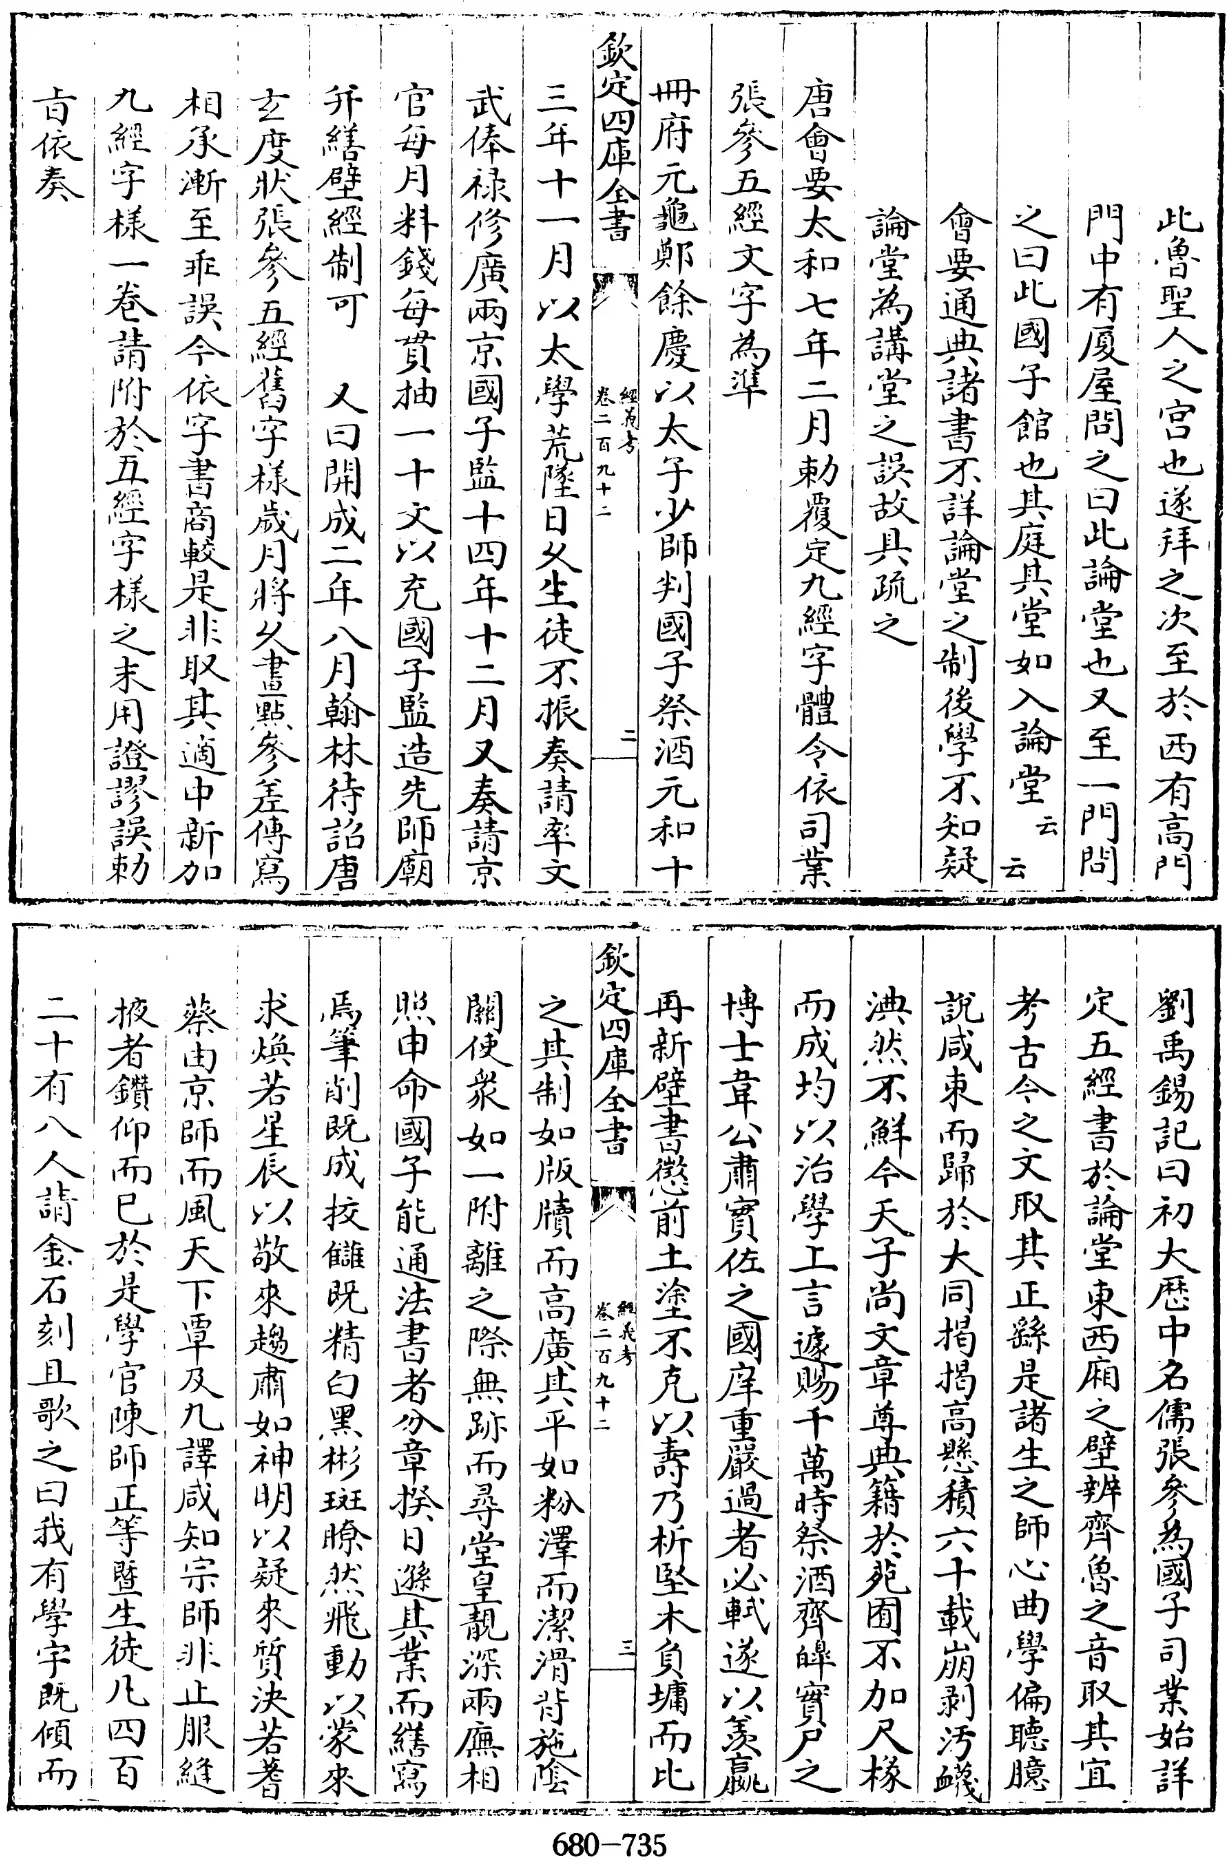 此魯聖人之宮也遂拜之次至於西有高門
門中有厦屋問之曰此論堂也又至一門問
之曰此國子館也其庭其堂如入論堂云云
會要通典諸書不詳論堂之制後學不知疑
論堂為講堂之誤故具疏之
唐會要太和七年二月勅覆定九經字體令依司業
張參五經文字為準
冊府元龜鄭餘慶以太子少師判國子祭酒元和十
欽定四庫全書
經義考
卷二百九十二
二
三年十一月以太學荒墜日久生徒不振奏請率文
武俸祿修廣兩京國子監十四年十二月又奏請京
官每月料錢每貫抽一十文以充國子監造先師廟
幷繕壁經制可 又曰開成二年八月翰林待詔唐
玄度狀張參五經舊字樣歲月將久畫點參差傳寫
相承漸至乖誤今依字書商較是非取其適中新加
九經字樣一卷請附於五經字樣之末用證謬誤勅
旨依奏
劉禹錫記曰初大歷中名儒張參為國子司業始詳
定五經書於論堂東西廂之壁辨齊魯之音取其宜
考古今之文取其正繇是諸生之師心曲學偏聽臆
說咸束而歸於大同揭揭高懸積六十載崩剥汚衊
淟然不鮮今天子尚文章尊典籍於苑囿不加尺椽
而成均以治學工言遽賜千萬時祭酒齊皥實尸之
博士韋公肅實佐之國庠重嚴過者必軾遂以羨贏
再新壁書懲前土塗不克以壽乃析堅木負墉而比
欽定四庫全書
經義考
卷二百九十二
三
之其制如版牘而高廣其平如粉澤而潔滑背施陰
關使衆如一附離之際無跡而尋堂皇靚深兩廡相
照申命國子能通法書者分章揆日遜其業而繕寫
焉筆削既成挍讎既精白黑彬斑瞭然飛動以蒙來
求煥若星辰以敬來趨肅如神明以疑來質決若蓍
蔡由京師而風天下覃及九譯咸知宗師非止服縫
掖者鑽仰而已於是學官陳師正等曁生徒凡四百
二十有八人請金石刻且歌之曰我有學宇既傾而
680-735